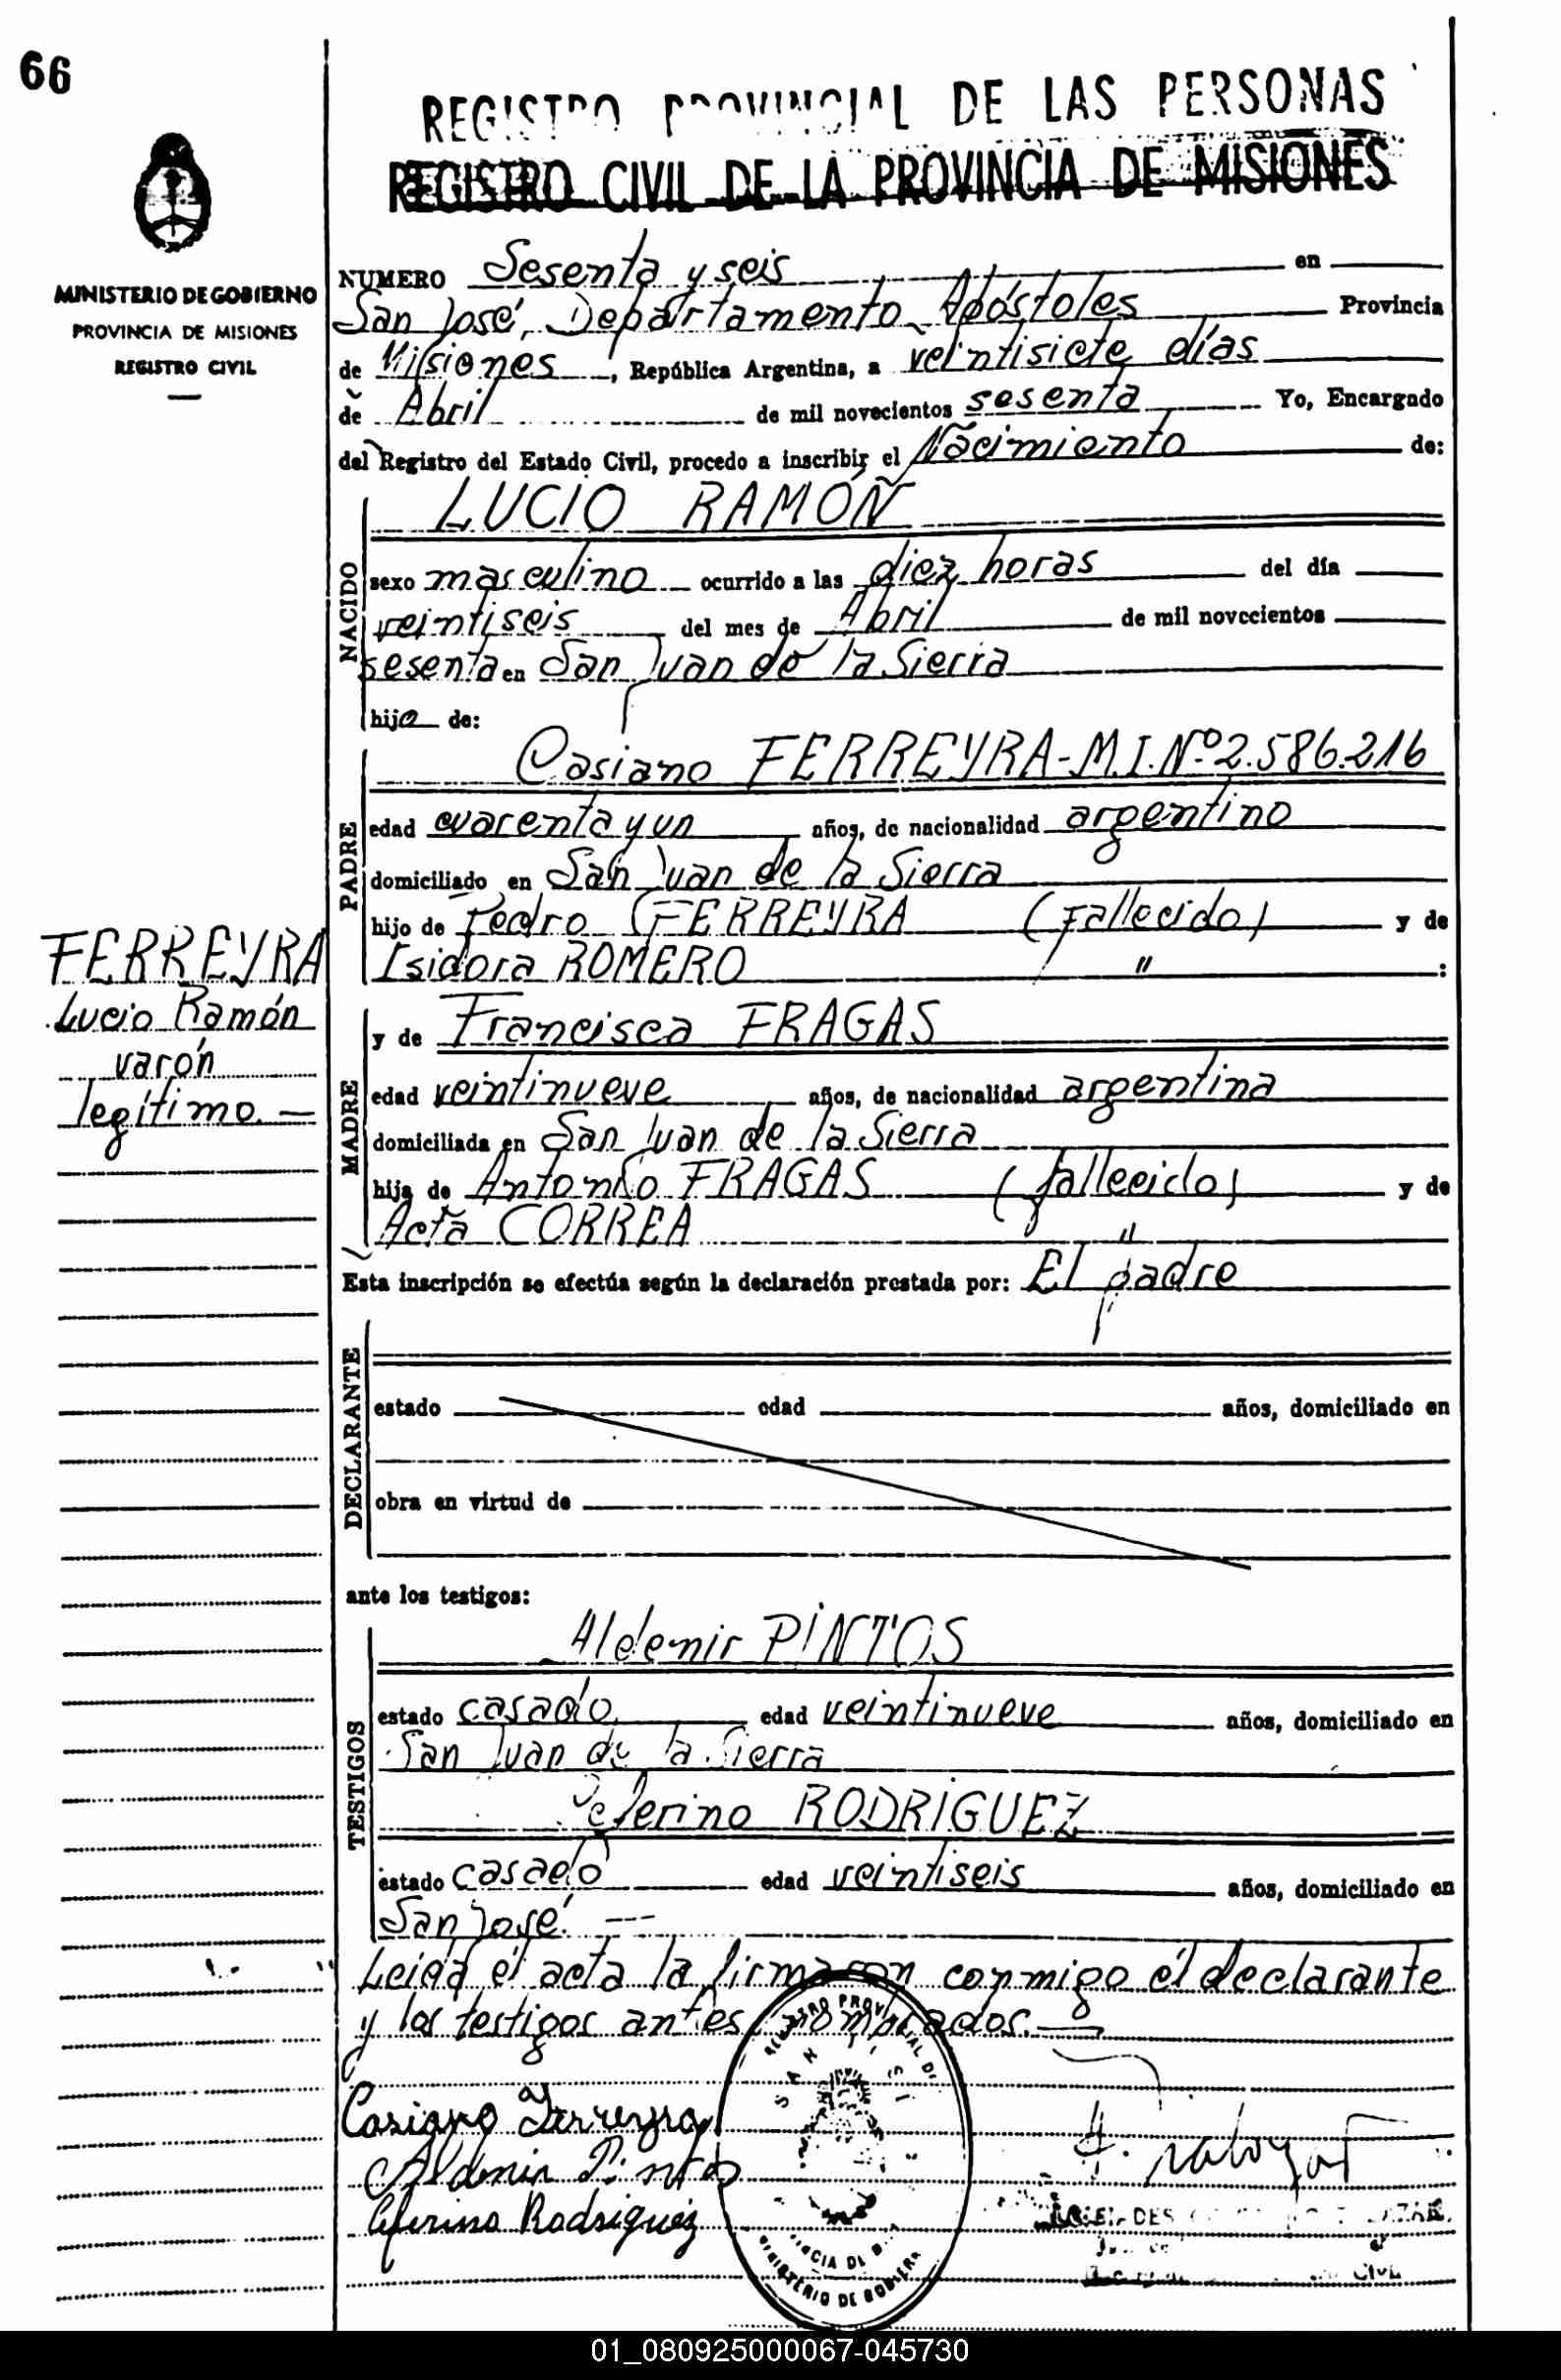 66
REGISTRO PROVINCIAL DE LAS PERSONAS
REGISTRO CIVIL DE LA PROVINCIA DE MISIONES
MINISTERIO DE GOBIERNO
PROVINCIA DE MISIONES
REGISTRO CIVIL
NUMERO Sesenta y seis en
San José, Departamento Apóstoles Provincia
de Misiones, República Argentina, a veintisiete días
de Abril de mil novecientos sesenta Yo, Encargado
del Registro del Estado Civil, procedo a inscribir el Nacimiento de:
NACIDO
LUCIO RAMÓN
sexo masculino ocurrido a las diez horas del día
veintiseis del mes de Abril de mil novecientos
sesenta en San Juan de la Sierra
hijo de:
PADRE
Casiano FERREYRA-M.I.Nº2.586.216
edad cuarenta y un años, de nacionalidad argentino
domiciliado en San Juan de la Sierra
hijo de Pedro FERREYRA (Fallecido) y de
Isidora ROMERO " :
FERREYRA
Lucio Ramón
varón
legítimo.—
MADRE
y de Francisca FRAGAS
edad veintinueve años, de nacionalidad argentina
domiciliada en San Juan de la Sierra
hija de Antonio FRAGAS (fallecido) y de
Acta CORREA "
Esta inscripción se efectúa según la declaración prestada por: El padre
DECLARANTE
estado edad años, domiciliado en
obra en virtud de
ante los testigos:
TESTIGOS
Aldemir PINTOS
estado casado edad veintinueve años, domiciliado en
San Juan de la Sierra
Ceferino RODRIGUEZ
estado casado edad veintiseis años, domiciliado en
San José.
Leida el acta la firmaron conmigo el declarante
y los testigos antes nombrados.—
Casiano Ferreyra
Aldemir Pintos
Ceferino Rodriguez
MINISTERIO DE GOBIERNO
01_080925000067-045730